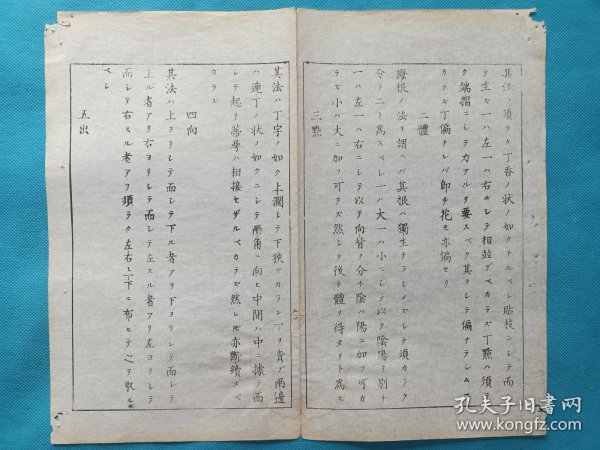 其法ハ須ラク丁香ノ状ノ如クナルベシ貼枝ニシテ而
テ生ズ一ハ左一ハ右ニシテ相竝ブベカラズ丁點ハ須
ク端摺ニシテ力アルヲ要スベク其ヲシテ偏ナラシム
カラズ丁偏ナレバ即チ花モ亦偏ヒリ
二體
梅根ノ法ヲ謂ヘバ其根ハ獨生ナラシメズシテ須カラク
分テ二ト為スベシ一ハ大一ハ小ニシテ以テ陰陽ヲ別チ
一ハ左一ハ右ニシテ以テ向背ヲ分チ陰ハ陽ニ加フ可カ
ラズ小ハ大ニ加フ可ラズ然シテ後チ體ヲ得タリト為ス
三點
其法ハ丁字ノ如ク上濶シテ下狹マカラン丁ヲ貴ブ兩邊
ハ連丁ノ状ノ如クニシテ兩角ニ向ヒ中間ハ中ニ據テ而
シテ起チ蒂萼ハ相接セザルベカラズ然シ𪜈亦斷續スベ
カラズ
四向
其法ハ上ヨリシテ而シテ下ル者アリ下ヨリシテ而シテ
上ル者アリ右ヨリシテ而シテ左スル者アリ左ヨリシテ
而シテ右スル者アリ須ラク左右上下ニ布ヒテ之ヲ取ル
ベシ
五出
孔夫子旧书网
www.kongfz.com